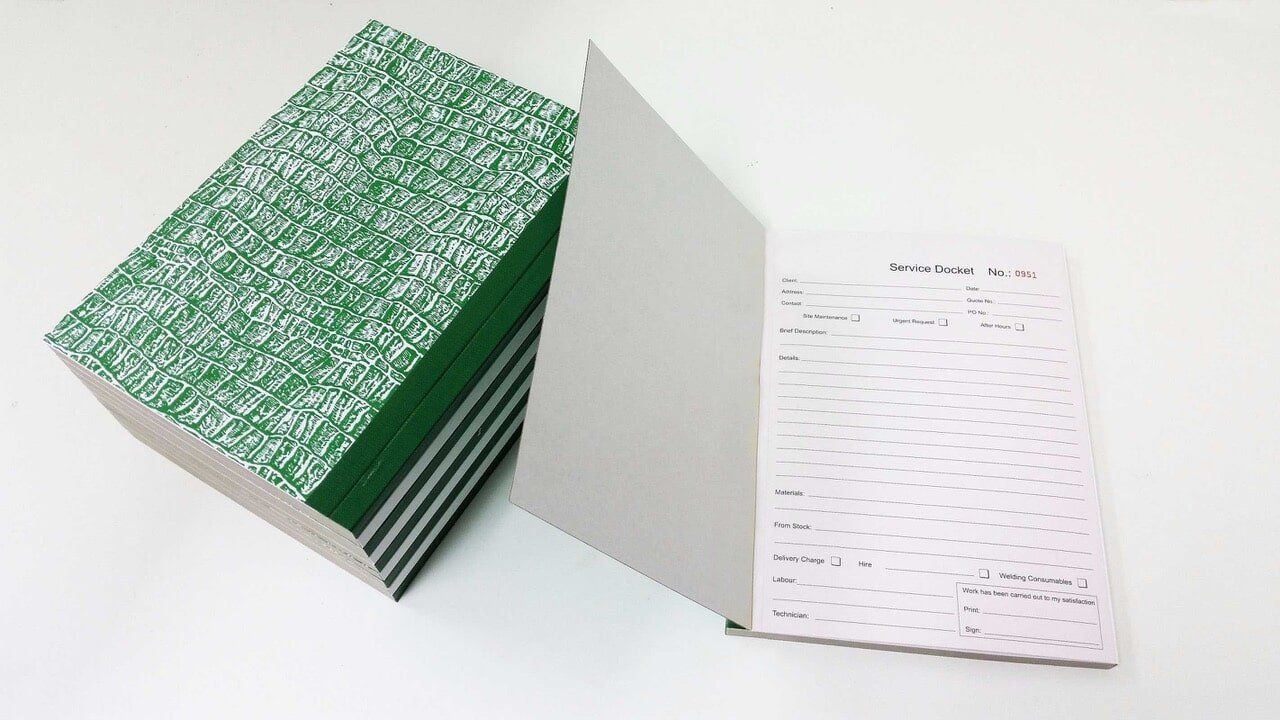 Service Docket No.: 0951
Client: Date:
Address: Quote No.:
Contact: PO No.:
Site Maintenance Urgent Request After Hours
Brief Description:
Details:
Materials:
From Stock:
Delivery Charge Hire Welding Consumables
Labour: Work has been carried out to my satisfaction
Print:
Technician:
Sign: